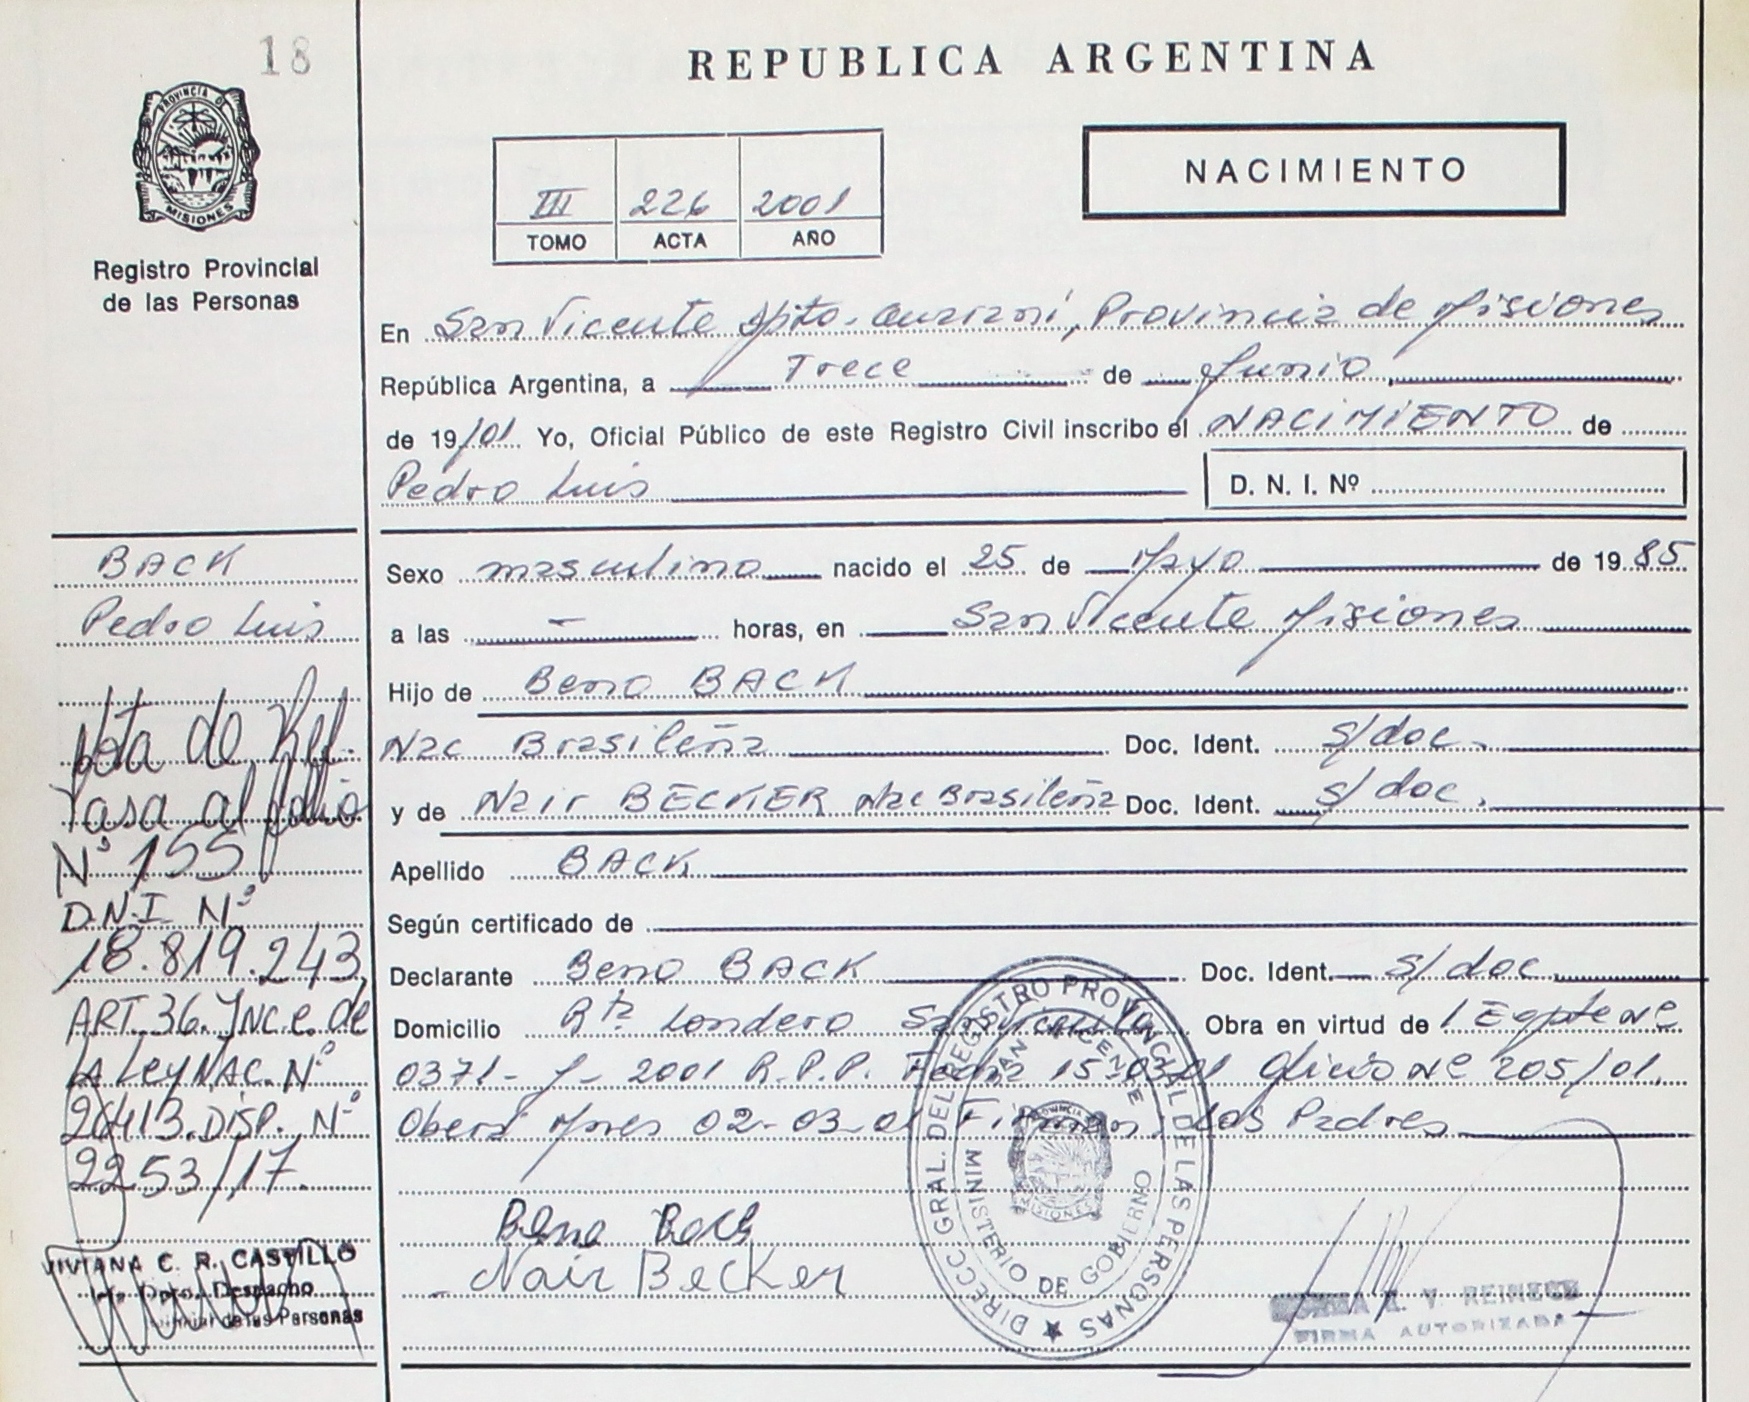 18
REPUBLICA ARGENTINA
PROVINCIA DE
MISIONES
Registro Provincial
de las Personas
NACIMIENTO
III 226 2001
TOMO ACTA AÑO
En San Vicente Dpto. Guaraní, Provincia de Misiones
República Argentina, a Trece de Junio
de 19/01. Yo, Oficial Público de este Registro Civil inscribo el NACIMIENTO de
Pedro Luis D. N. I. Nº
BACK
Pedro Luis
Sexo masculino nacido el 25 de Mayo de 1985
a las - horas, en San Vicente Misiones
Hijo de Beno BACK
Nac Brasileña Doc. Ident. s/doc.
y de Nair BECKER Nac Brasileña Doc. Ident. s/doc.
Apellido BACK
Según certificado de
Declarante Beno BACK Doc. Ident. s/doc
Domicilio Londero San Vicente Obra en virtud de Expte Nº
0371- - 2001 R.P.P. Fecha 15-03-01 Oficio Nº 205/01.
Oberá Mnes 02-03-01 Firman los Padres
Nota de Ref.
Pasa al folio
Nº 155
D.N.I. Nº
18.819.243,
ART. 36. Inc. e. de
LA Ley NAC. Nº
26413. DISP. Nº
2253/17.
VIVIANA C. R. CASTILLO
Dpto. Despacho
de las Personas
Beno Back
Nair Becker
DIRECC GRAL. DEL REGISTRO PROVINCIAL DE LAS PERSONAS
MINISTERIO DE GOBIERNO
SAN VICENTE
PROVINCIA
MISIONES
V. REINECK
FIRMA AUTORIZADA